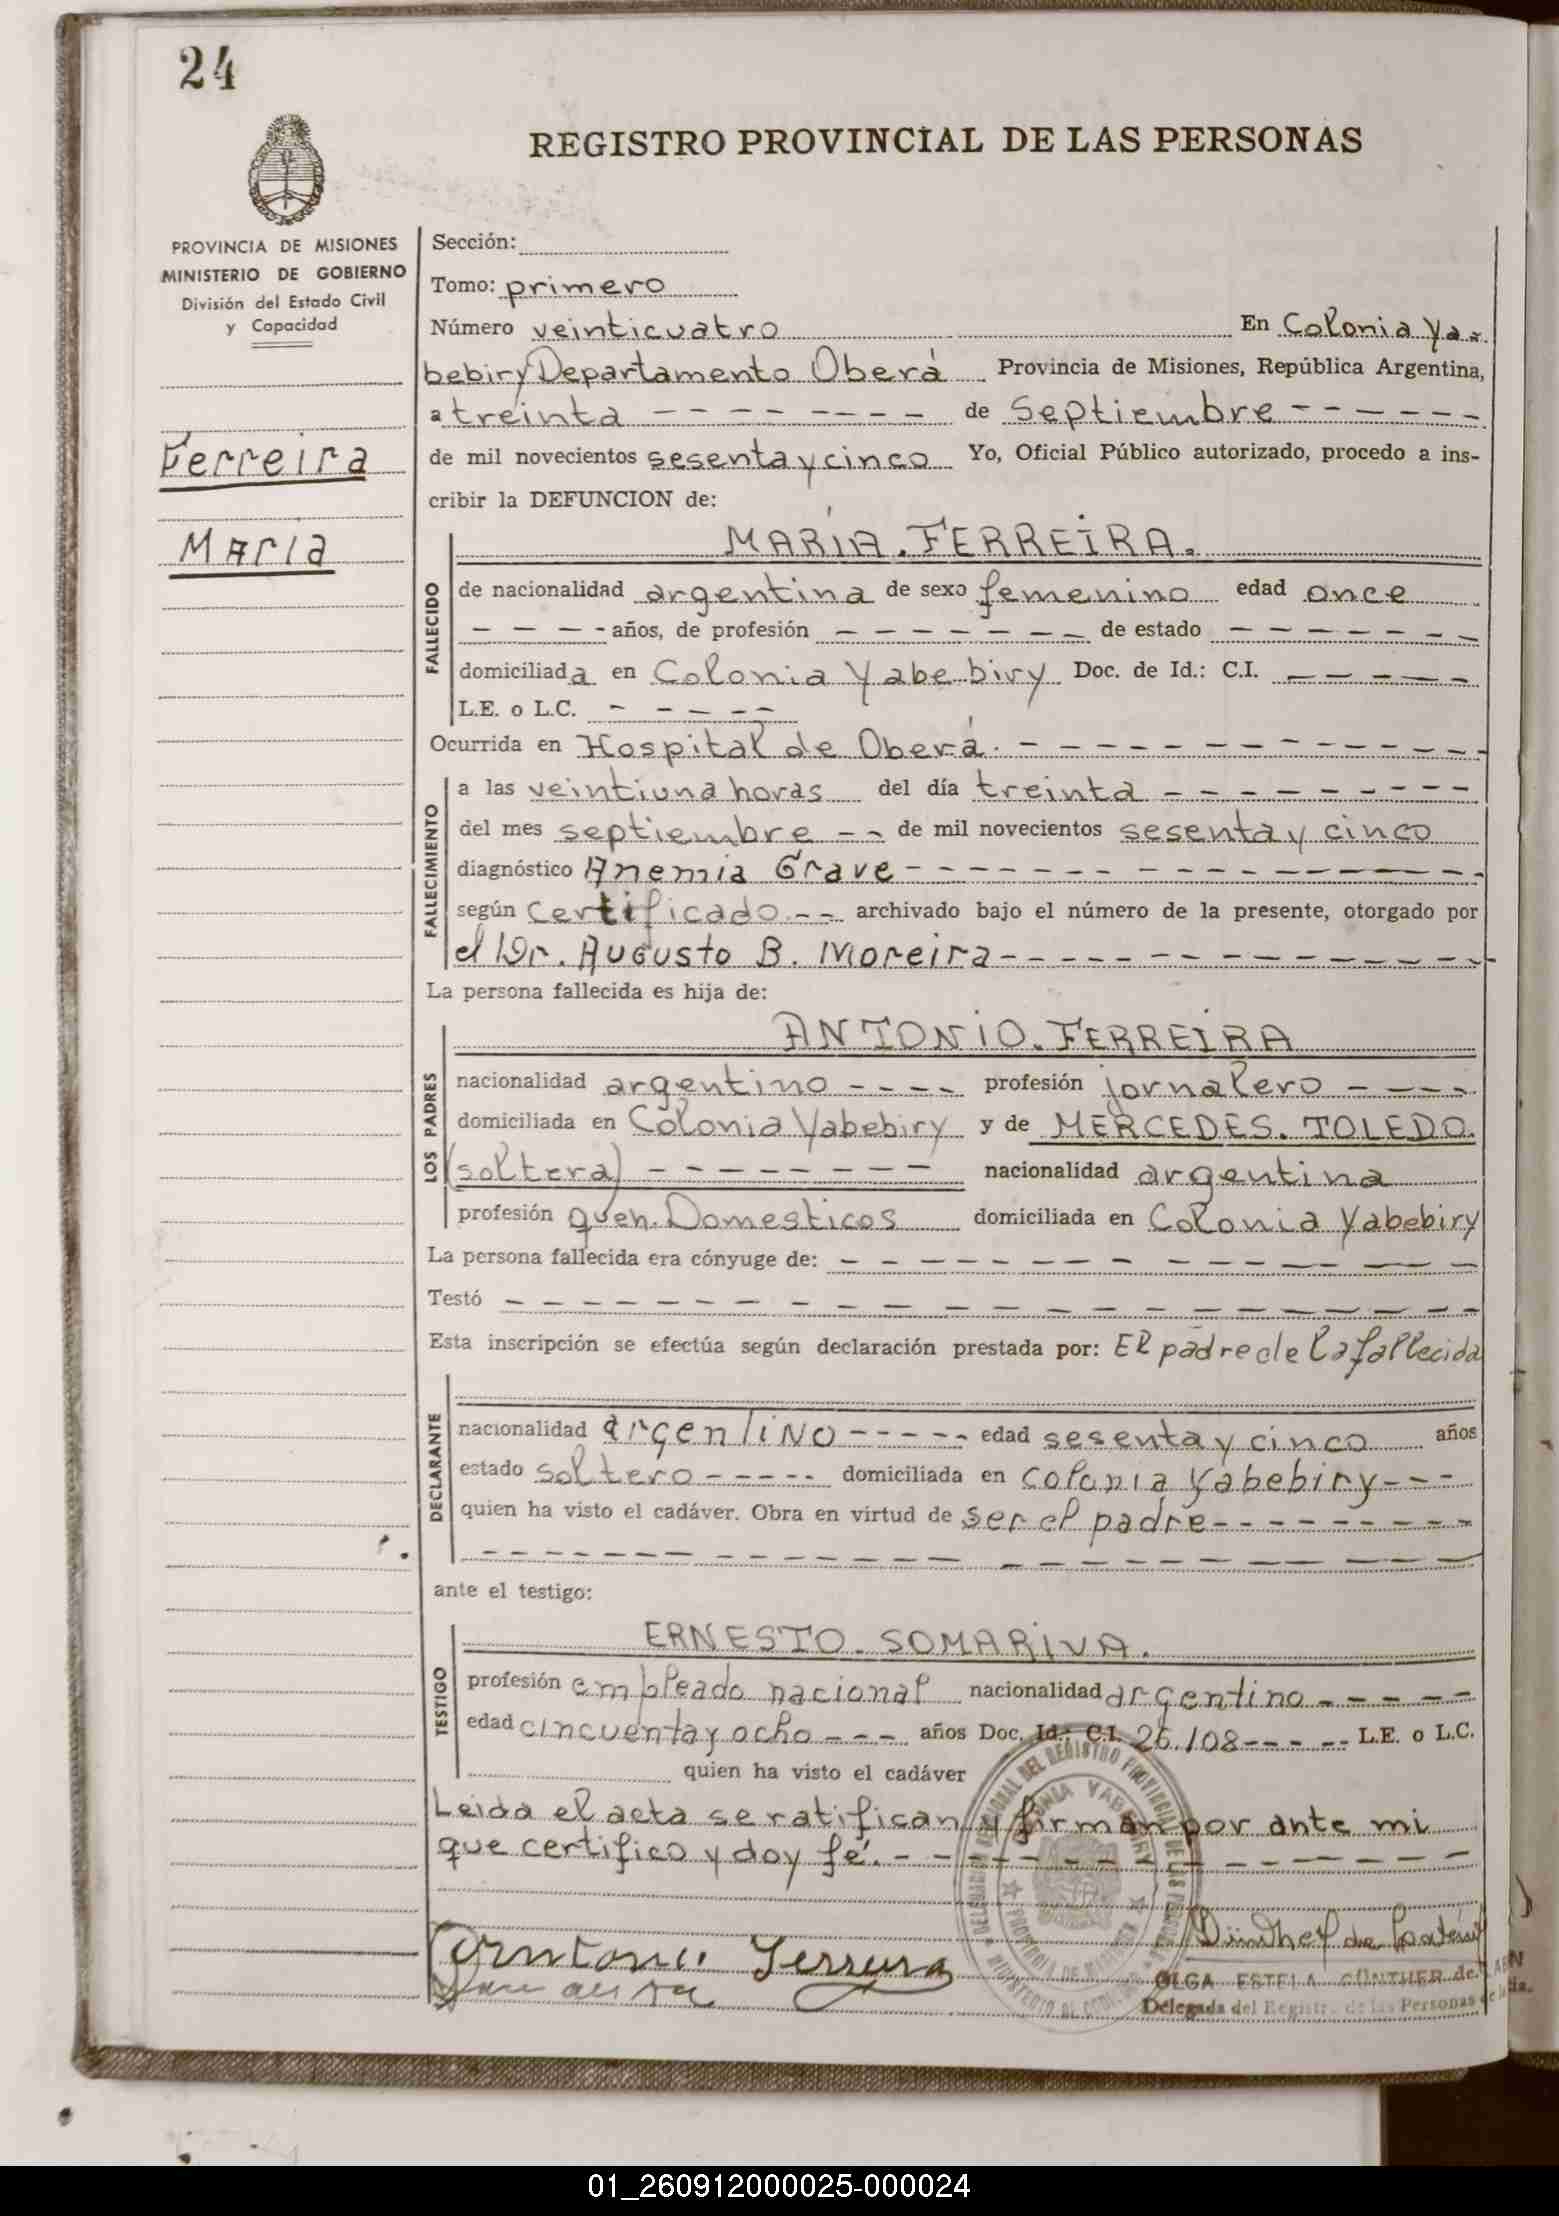 24
REGISTRO PROVINCIAL DE LAS PERSONAS
PROVINCIA DE MISIONES
MINISTERIO DE GOBIERNO
División del Estado Civil
y Capacidad
Ferreira
Maria
Sección:
Tomo: primero
Número veinticuatro En Colonia Ya-
bebiry Departamento Oberá Provincia de Misiones, República Argentina,
a treinta - - - - - - - - de Septiembre - - - - - -
de mil novecientos sesenta y cinco Yo, Oficial Público autorizado, procedo a ins-
cribir la DEFUNCION de:
MARÍA. FERREIRA.
FALLECIDO
de nacionalidad argentina de sexo femenino edad once
- - - - años, de profesión - - - - - - - de estado - - - - - - -
domiciliada en Colonia Yabebiry Doc. de Id.: C.I. - - - - -
L.E. o L.C. - - - - -
Ocurrida en Hospital de Oberá. - - - - - - - - - - - - -
FALLECIMIENTO
a las veintiuna horas del día treinta - - - - - - - - -
del mes septiembre - - de mil novecientos sesenta y cinco
diagnóstico Anemia Grave - - - - - - - - - - - - - -
según Certificado. - - archivado bajo el número de la presente, otorgado por
el Dr. Augusto B. Moreira - - - - - - - - - - - - -
La persona fallecida es hija de:
ANTONIO. FERREIRA
LOS PADRES
nacionalidad argentino - - - - profesión jornalero - - - -
domiciliada en Colonia Yabebiry y de MERCEDES. TOLEDO.
(soltera) - - - - - - - - nacionalidad argentina
profesión queh. Domesticos domiciliada en Colonia Yabebiry
La persona fallecida era cónyuge de: - - - - - - - - - - - - -
Testó - - - - - - - - - - - - - - - - - - - - - -
Esta inscripción se efectúa según declaración prestada por: El padre de la fallecida
DECLARANTE
nacionalidad argentino - - - - - edad sesenta y cinco años
estado soltero - - - - - domiciliada en colonia Yabebiry - - -
quien ha visto el cadáver. Obra en virtud de ser el padre - - - - - - - - -
- - - - - - - - - - - - - - - - - - - - - - -
ante el testigo:
ERNESTO. SOMARIVA.
TESTIGO
profesión empleado nacional nacionalidad argentino - - - - -
edad cincuenta y ocho - - - años Doc. Id.: C.I. 26.108 - - - - - L.E. o L.C.
quien ha visto el cadáver
Leida el acta se ratifican y firman por ante mi
que certifico y doy fé. - - - - - - - - - - - - - - -
Antonio Ferreira
OLGA ESTELA GÜNTHER de
Delegada del Registro de las Personas
01_260912000025-000024